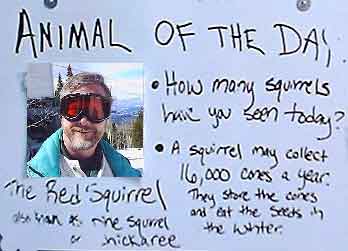 ANIMAL OF THE DAY
• How many squirrels
have you seen today?
• A squirrel may collect
16,000 cones a year.
They store the cones
and eat the seeds in
the winter.
The Red Squirrel
Squirrel
or chickaree